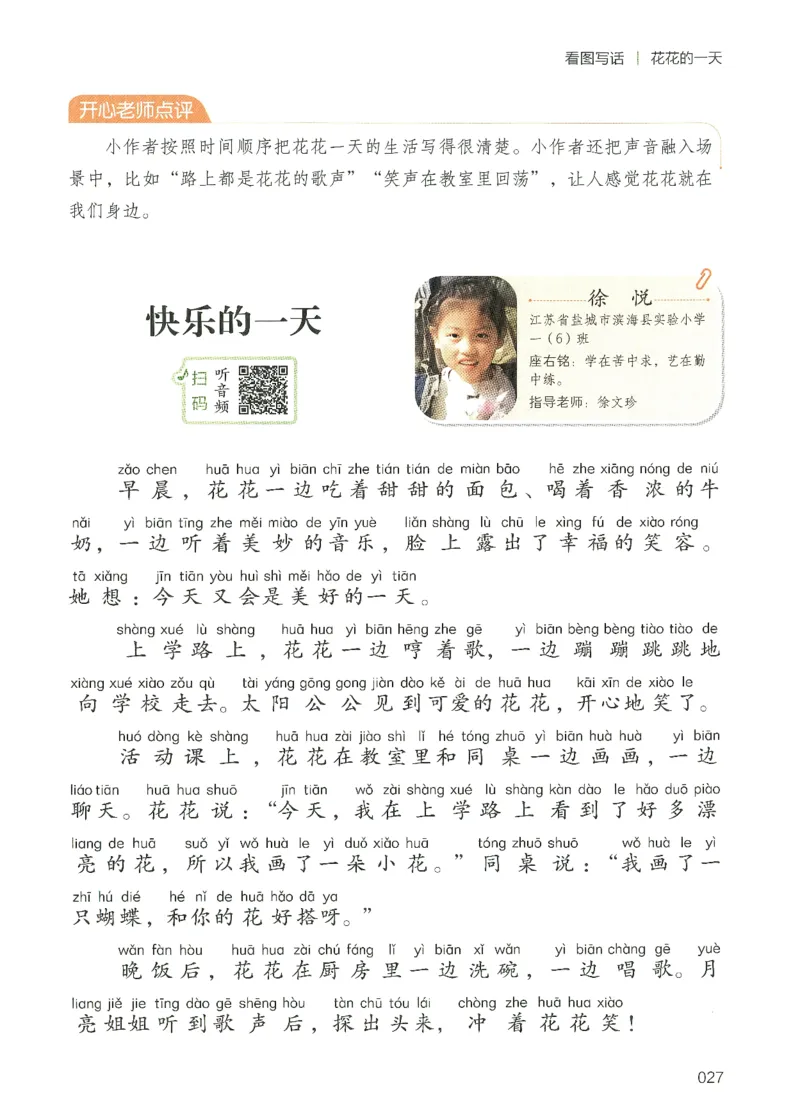 看图写话 | 花花的一天
开心老师点评
小作者按照时间顺序把花花一天的生活写得很清楚。小作者还把声音融入场
景中，比如“路上都是花花的歌声”“笑声在教室里回荡”，让人感觉花花就在
我们身边。
快乐的一天
扫码
听音频
徐 悦
江苏省盐城市滨海县实验小学
一（6）班
座右铭：学在苦中求，艺在勤
中练。
指导老师：徐文珍
zǎo chen huā hua yì biān chī zhe tián tián de miàn bāo hē zhe xiāng nóng de niú
早晨，花花一边吃着甜甜的面包、喝着香浓的牛
nǎi yì biān tīng zhe měi miào de yīn yuè liǎn shàng lù chū le xìng fú de xiào róng
奶，一边听着美妙的音乐，脸上露出了幸福的笑容。
tā xiǎng jīn tiān yòu huì shì měi hǎo de yì tiān
她想：今天又会是美好的一天。
shàng xué lù shàng huā hua yì biān hēng zhe gē yì biān bèng bèng tiào tiào de
上学路上，花花一边哼着歌，一边蹦蹦跳跳地
xiàng xué xiào zǒu qù tài yáng gōng gong jiàn dào kě ài de huā hua kāi xīn de xiào le
向学校走去。太阳公公见到可爱的花花，开心地笑了。
huó dòng kè shàng huā hua zài jiào shì lǐ hé tóng zhuō yì biān huà huà yì biān
活动课上，花花在教室里和同桌一边画画，一边
liáo tiān huā hua shuō jīn tiān wǒ zài shàng xué lù shàng kàn dào le hǎo duō piào
聊天。花花说：“今天，我在上学路上看到了好多漂
liang de huā suǒ yǐ wǒ huà le yì duǒ xiǎo huā tóng zhuō shuō wǒ huà le yì
亮的花，所以我画了一朵小花。”同桌说：“我画了一
zhī hú dié hé nǐ de huā hǎo dā ya
只蝴蝶，和你的花好搭呀。”
wǎn fàn hòu huā hua zài chú fáng lǐ yì biān xǐ wǎn yì biān chàng gē yuè
晚饭后，花花在厨房里一边洗碗，一边唱歌。月
liang jiě jie tīng dào gē shēng hòu tàn chū tóu lái chòng zhe huā hua xiào
亮姐姐听到歌声后，探出头来，冲着花花笑！
027